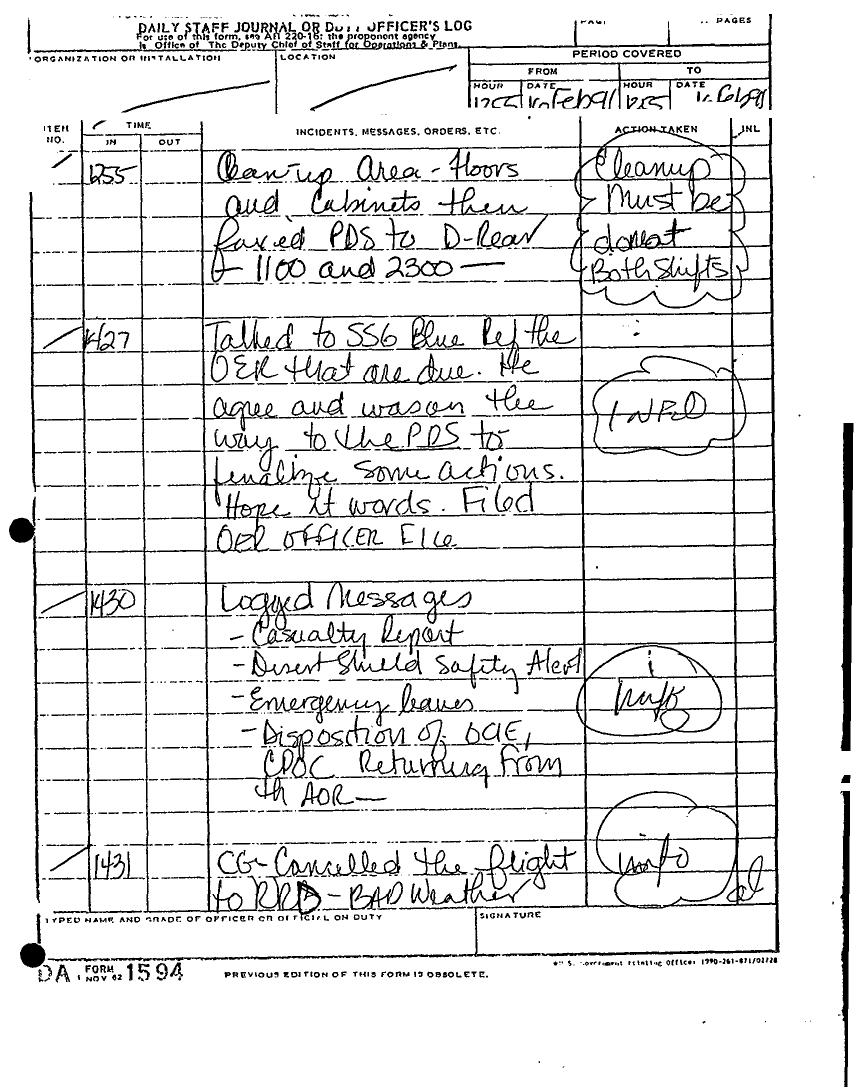 DAILY STAFF JOURNAL OR DUTY OFFICER'S LOG
For use of this form, see AR 220-15; the proponent agency
is Office of The Deputy Chief of Staff for Operations & Plans.
PAGES
ORGANIZATION OR INSTALLATION
LOCATION
PERIOD COVERED
FROM
TO
HOUR
DATE
HOUR
DATE
1255
Feb 91
1255
Feb 91
ITEM NO.
TIME
IN
OUT
INCIDENTS, MESSAGES, ORDERS, ETC.
ACTION TAKEN
INL
1255
Clean up Area - floors
and Cabinets then
faxed PDS to D-Rear
1100 and 2300 —
Cleanup
Must be
done at
Both Shifts
1427
Talked to SSG Blue Ref the
OER that are due. He
agree and was on the
way to the PDS to
finalize some actions.
Hope it words. Filed
OER OFFICER File
INFO
1430
Logged Messages
- Casualty Report
- Desert Shield Safety Alert
- Emergency leaves
- Disposition of OCIE,
CDOC Returning from
th AOR —
info
1431
CG - Cancelled the flight
to RRD - BAD Weather
info
TYPED NAME AND GRADE OF OFFICER OR OFFICIAL ON DUTY
SIGNATURE
DA FORM 1 NOV 62 1594
PREVIOUS EDITION OF THIS FORM IS OBSOLETE.
U.S. Government Printing Office: 1990-261-871/01728